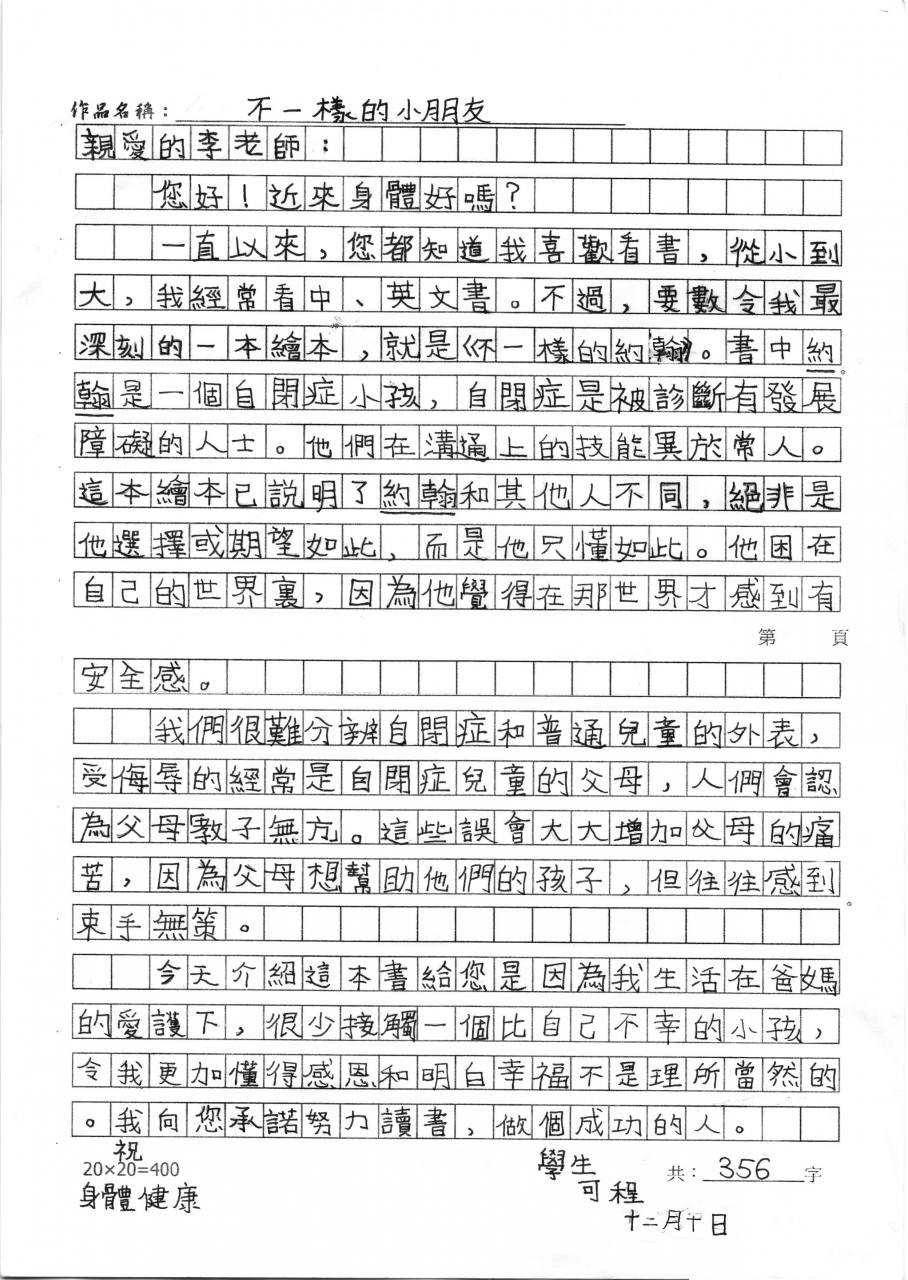 作品名稱：不一樣的小朋友
親愛的李老師：
您好！近來身體好嗎？
一直以來，您都知道我喜歡看書，從小到
大，我經常看中、英文書。不過，要數令我最
深刻的一本繪本，就是《不一樣的約翰》。書中約
翰是一個自閉症小孩，自閉症是被診斷有發展
障礙的人士。他們在溝通上的技能異於常人。
這本繪本已說明了約翰和其他人不同，絕非是
他選擇或期望如此，而是他只懂如此。他困在
自己的世界裏，因為他覺得在那世界才感到有
第 頁
安全感。
我們很難分辨自閉症和普通兒童的外表，
受侮辱的經常是自閉症兒童的父母，人們會認
為父母教子無方。這些誤會大大增加父母的痛
苦，因為父母想幫助他們的孩子，但往往感到
束手無策。
今天介紹這本書給您是因為我生活在爸媽
的愛護下，很少接觸一個比自己不幸的小孩，
令我更加懂得感恩和明白幸福不是理所當然的
。我向您承諾努力讀書，做個成功的人。
祝
20×20=400
身體健康
學生
可程
十二月十日
共：356字